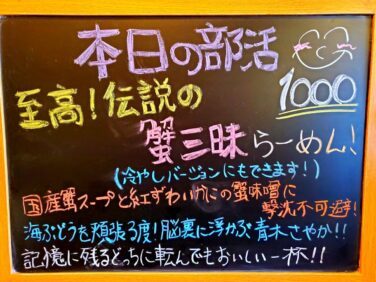 本日の部活
1000
至高!伝説の
蟹三昧らーめん!
(冷やしバージョンにもできます!)
国産蟹スープと紅ずわいがにの蟹味噌に
撃沈不可避!
海ぶどうを頬張る度!脳裏に浮かぶ青木さやか!!
記憶に残るどっちに転んでもおいしい一杯!!